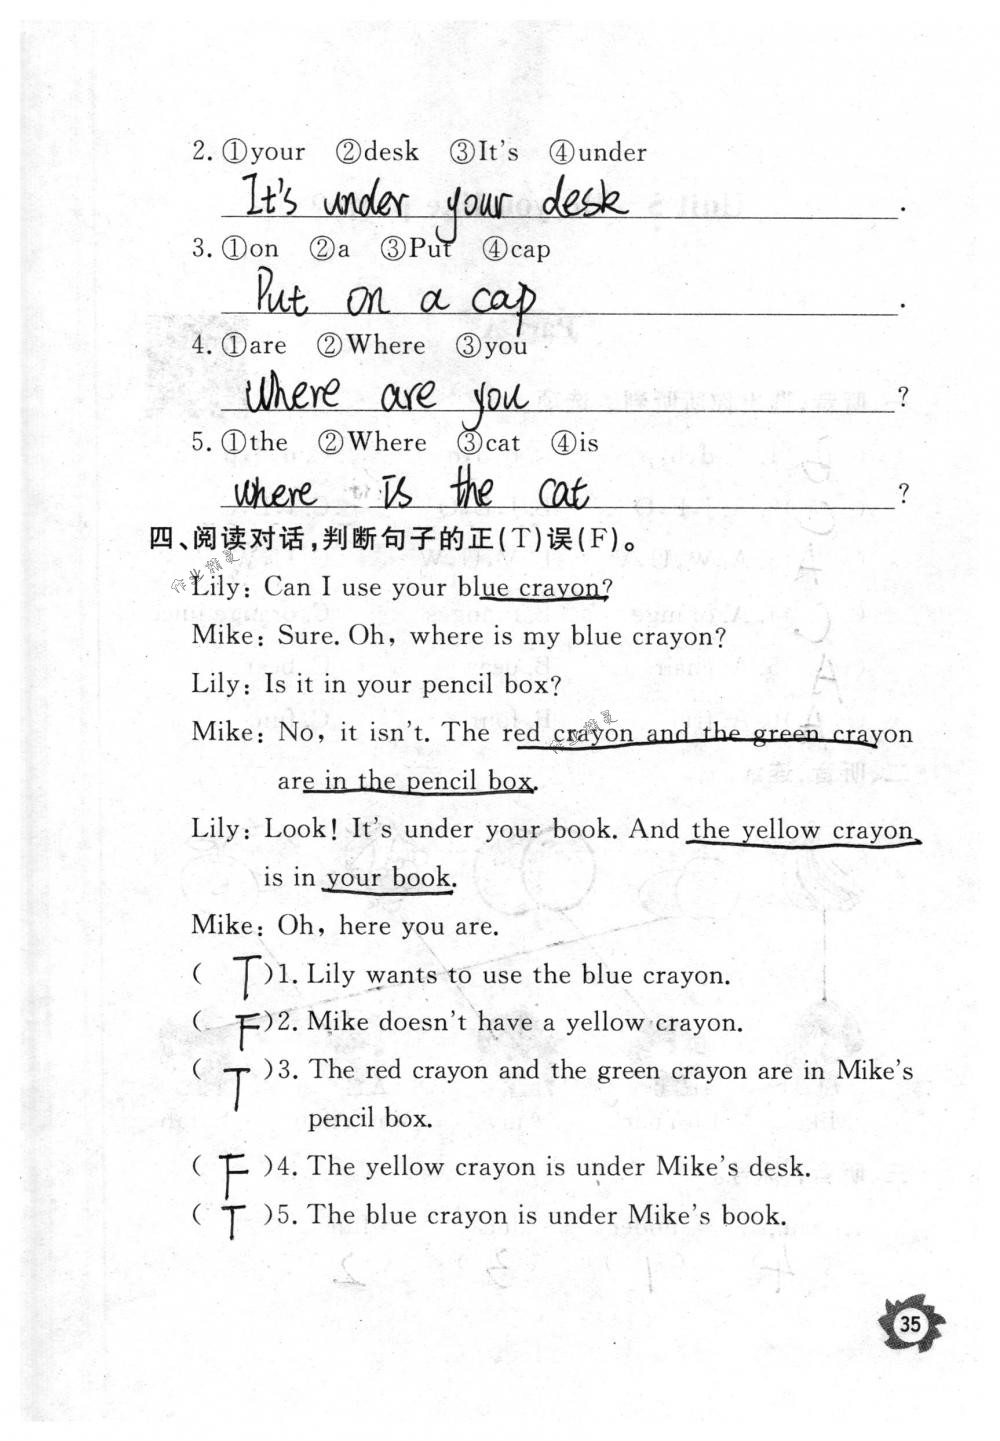 2. ①your ②desk ③It's ④under
It's under your desk.
3. ①on ②a ③Put ④cap
Put on a cap.
4. ①are ②Where ③you
Where are you?
5. ①the ②Where ③cat ④is
where is the cat?
四、阅读对话,判断句子的正(T)误(F)。
Lily: Can I use your blue crayon?
Mike: Sure. Oh, where is my blue crayon?
Lily: Is it in your pencil box?
Mike: No, it isn't. The red crayon and the green crayon
are in the pencil box.
Lily: Look! It's under your book. And the yellow crayon
is in your book.
Mike: Oh, here you are.
( T )1. Lily wants to use the blue crayon.
( F )2. Mike doesn't have a yellow crayon.
( T )3. The red crayon and the green crayon are in Mike's
pencil box.
( F )4. The yellow crayon is under Mike's desk.
( T )5. The blue crayon is under Mike's book.
35